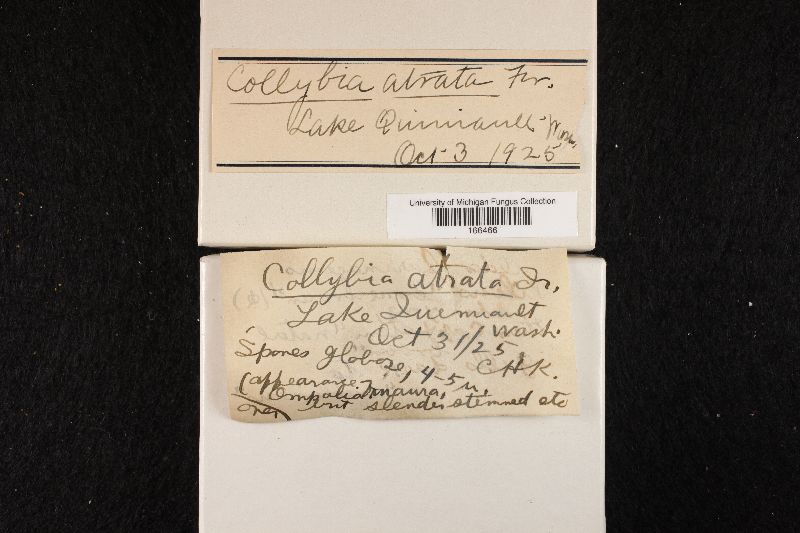 Collybia atrata Fr.
Lake Quiniault Wash.
Oct 3 1925
University of Michigan Fungus Collection
166466
Collybia atrata Fr.
Lake Queniault
Wash.
Oct 31/25
C.H.K.
Spores globose, 4-5 u,
(appearance,
Omphalia maura,
over but slender stemmed etc